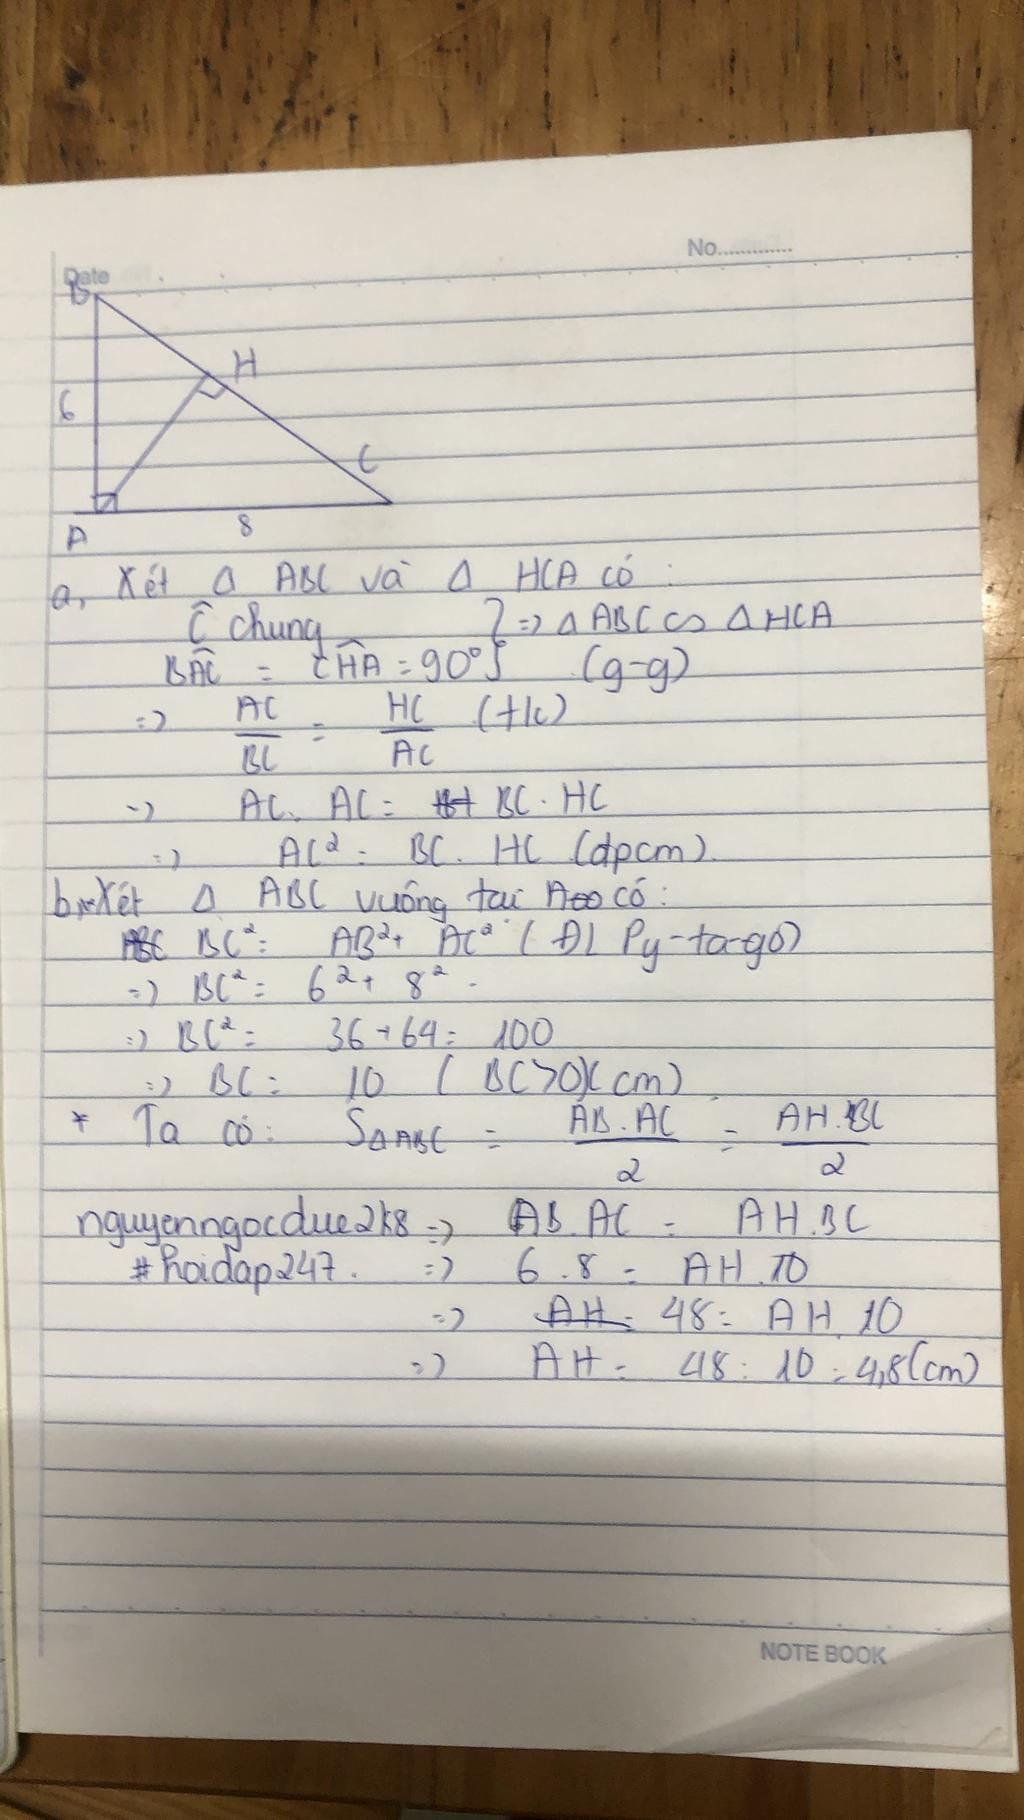 No.............
Date
B
H
6
C
A
8
a, Xét Δ ABC và Δ HCA có :
Ĉ chung } => Δ ABC ∽ Δ HCA
BÂC = CĤA = 90° (g-g)
=> AC/BC = HC/AC (tlc)
=> AC. AC = BC. HC
=> AC² = BC. HC (dpcm).
b, * Xét Δ ABC vuông tại A có :
BC² = AB² + AC² ( ĐL Py-ta-go)
=> BC² = 6² + 8²
=> BC² = 36 + 64 = 100
=> BC = 10 ( BC>0)(cm)
* Ta có: SΔABC = AB.AC/2 = AH.BC/2
nguyenngocdue2k8 => AB.AC = AH.BC
#hoidap247. => 6.8 = AH.10
=> 48 = AH.10
=> AH = 48 : 10 = 4,8(cm)
NOTE BOOK